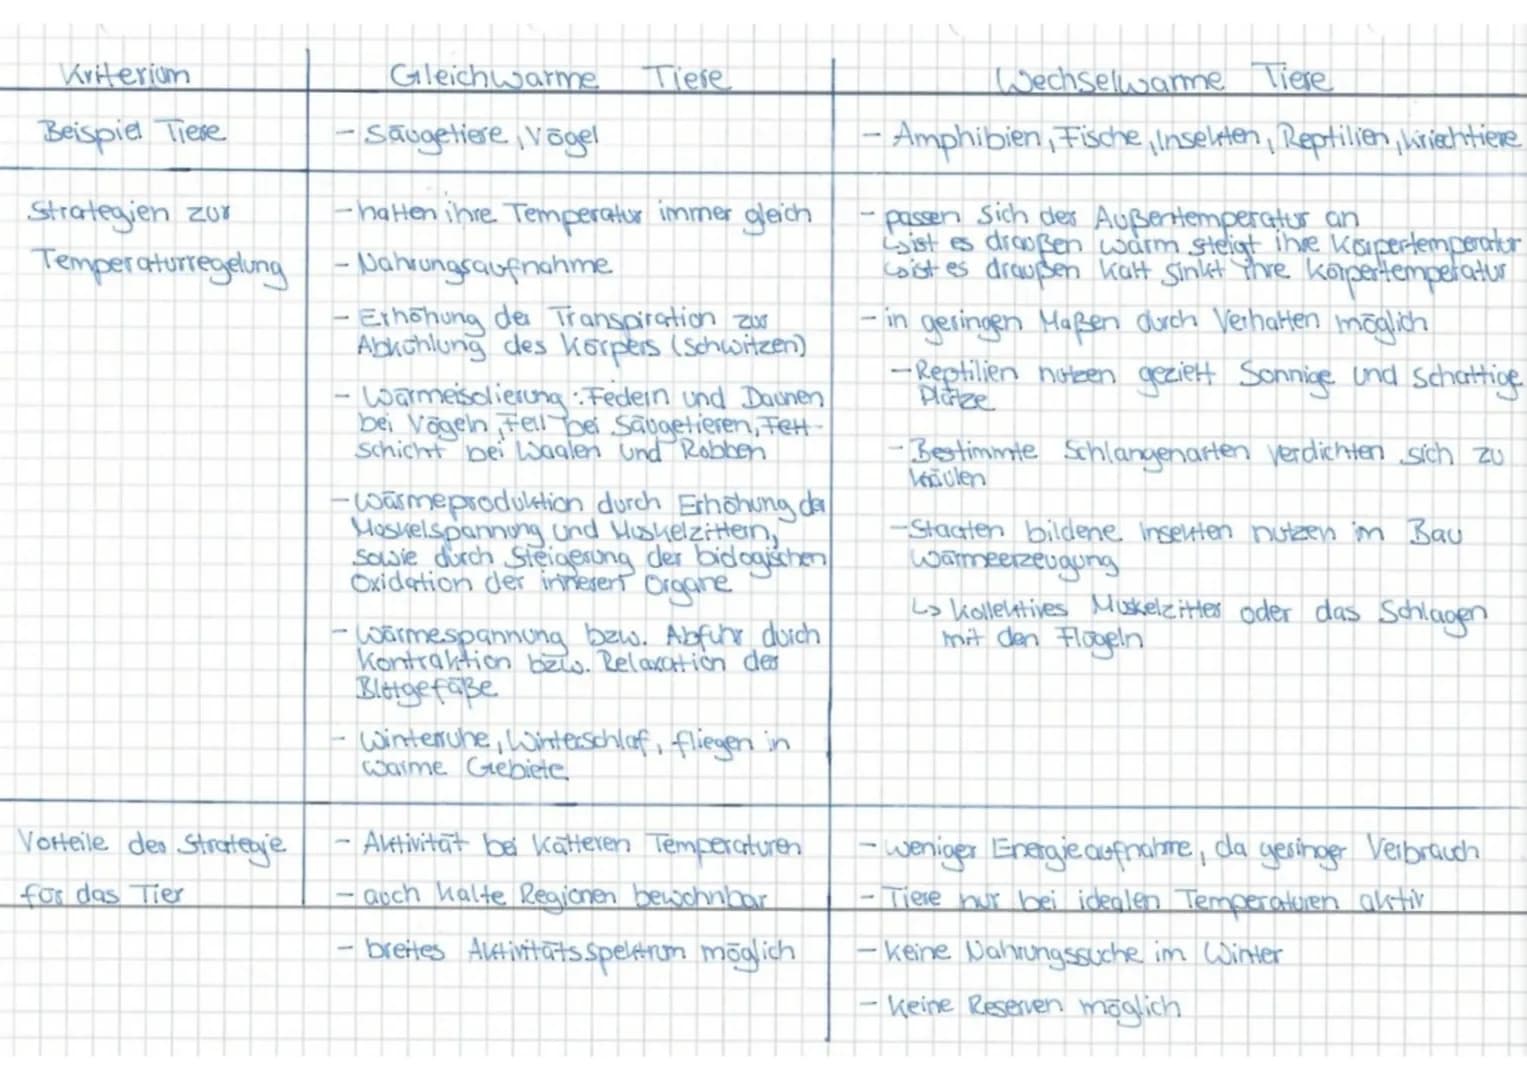 Kriterium
Gleichwarme Tiere
Wechselwarme Tiere
Beispiel Tiere
- Säugetiere, Vögel
- Amphibien, Fische, Insekten, Reptilien, Kriechtiere
Strategien zur
Temperaturregelung
- halten ihre Temperatur immer gleich
- Nahrungsaufnahme
- Erhöhung der Transpiration zur
Abkühlung des Körpers (Schwitzen)
- Wärmeisolierung: Federn und Daunen
bei Vögeln, Fell bei Säugetieren, Fett-
schicht bei Waalen und Robben
- Wärmeproduktion durch Erhöhung der
Muskelspannung und Muskelzittern,
sowie durch Steigerung der biologischen
Oxidation der inneren Organe
- Wärmespannung bzw. Abfuhr durch
Kontraktion bzw. Relaxation der
Blutgefäße
- Winterruhe, Winterschlaf, fliegen in
warme Gebiete
- passen sich der Außentemperatur an
↳ ist es draußen warm steigt ihre Körpertemperatur
↳ ist es draußen kalt sinkt ihre Körpertemperatur
- in geringen Maßen durch Verhalten möglich
- Reptilien nutzen gezielt Sonnige und schattige
Plätze
- Bestimmte Schlangenarten verdichten sich zu
Knäulen
- Staaten bildene Insekten nutzen im Bau
Wärmeerzeugung
↳ kollektives Muskelzitter oder das Schlagen
mit den Flügeln
Vorteile der Strategie
für das Tier
- Aktivität bei kälteren Temperaturen
- auch kalte Regionen bewohnbar
- breites Aktivitätsspektrum möglich
- weniger Energieaufnahme, da geringer Verbrauch
- Tiere nur bei idealen Temperaturen aktiv
- keine Nahrungssuche im Winter
- keine Reserven möglich